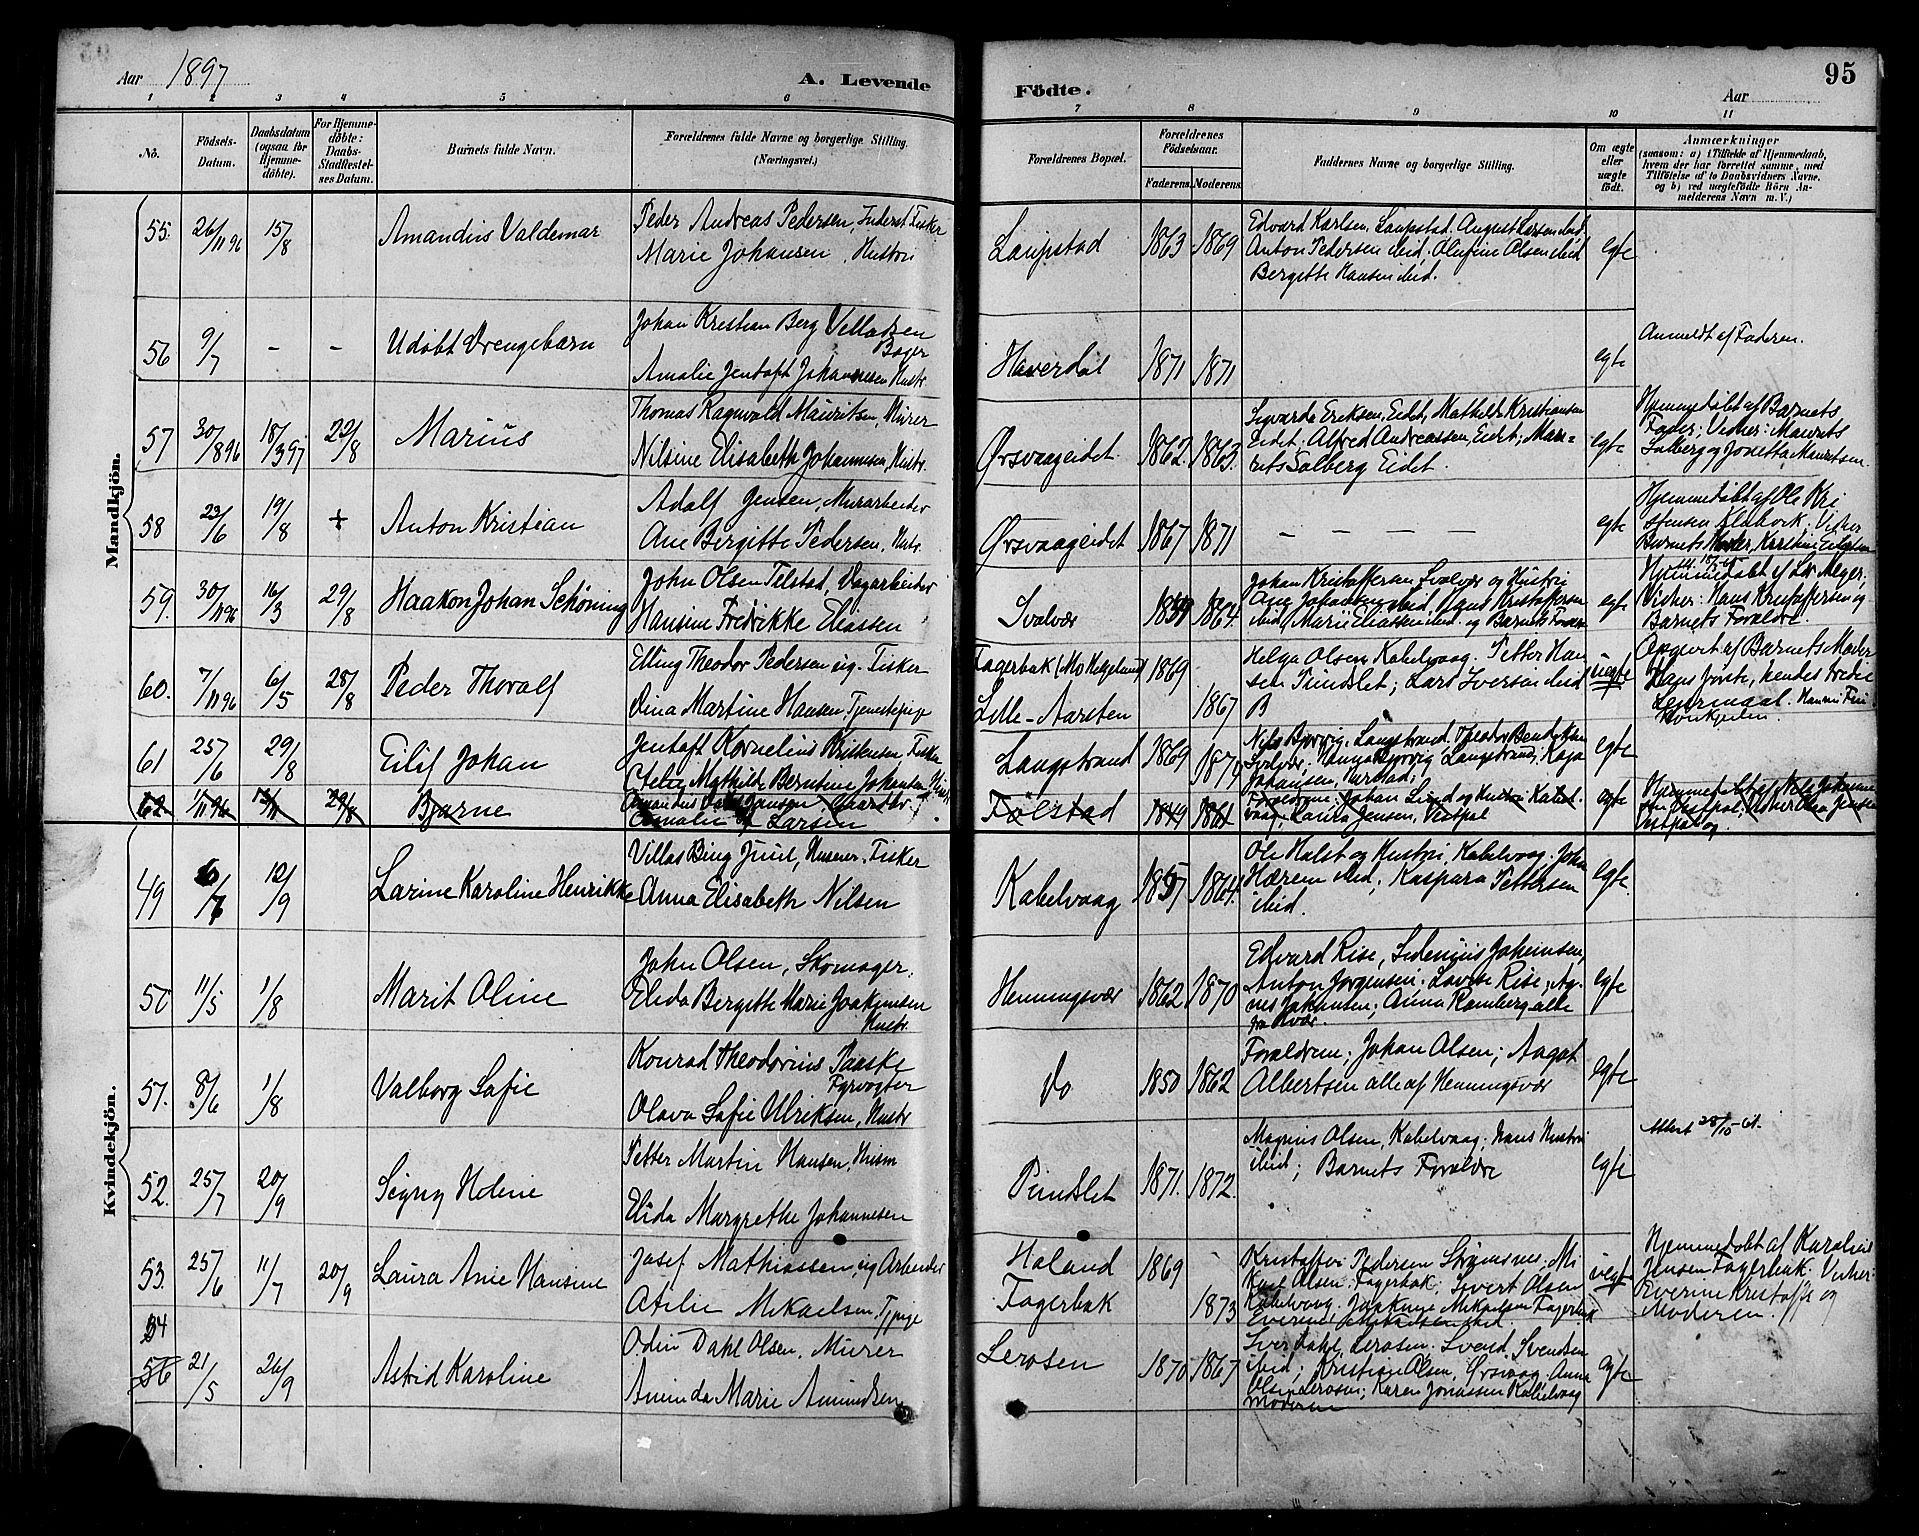 Aar 1897
A. Levende
Födte.
Aar
95
1 2 3 4 5 6 7 8 9 10 11
No.
Födsels-Datum.
Daabsdatum (ogsaa for Hjemmedöbte).
For Hjemmedöbte: Daabs-Stadfæstelses Datum.
Barnets fulde Navn.
Forældrenes fulde Navne og borgerlige Stilling.
(Næringsvei.)
Forældrenes Bopæl.
Forældrenes Födselsaar.
Faderens. Moderens.
Faddernes Navne og borgerlige Stilling.
Om ægte eller uægte födt.
Anmærkninger
(saasom: a) i Tilfælde af Hjemmedaab,
hvem der har forrettet samme, med
Tilföielse af to Daabsvidners Navne.
og b) ved uægtefödte Börn An-
melderens Navn m. V.)
Mandkjön.
55. 26/11 96 15/8 Amandus Valdemar
Peder Andreas Pedersen, Inderst Fisker
Marie Johansen, Hustru
Laupstad 1863 1869
Edvard Karlsen, Laupstad. August Larsen ibid.
Anton Pedersen ibid; Olufine Olsen ibid
Bergitte Hansen ibid.
egte
56 9/7 – – Udøbt Drengebarn
Johan Kristian Berg Velladsen
Bager
Amalie Jentoft Johannesen Hustr
Haverdal 1871 1871
egte
Anmeldt af Faderen.
57 30/8 96 18/3 97 22/8 Marius
Thomas Ragnvald Mauritsen, Murer
Nilsine Elisabeth Johannesen, Hustr.
Ørsvaageidet 1862. 1863.
Sivarda Eriksen, Eidet, Mathilde Kristiansen
Eidet; Alfred Andreassen, Eidet; Mau-
rits Solberg Eidet.
egte
Hjemmedøbt af Barnets
Fader; Vidner: Maurits
Solberg og Josetta Mauritsen
58 23/6 19/8 + Anton Kristian
Adolf Jensen, Murarbeider
Ane Bergitte Pedersen, Hustr.
Ørsvaageidet 1867 1871 – – – –
egte
Hjemmedøbt af Ole Kri
stensen Kleivik; Vidner
Barnets Moder, Kristine
59. 30/11 96 16/3 29/8 Haakon Johan Schöning
John Olsen Telstad, Dagarbeider
Hansine Fredrikke Eliassen
Svolvær 1864.
Johan Kristoffersen Svolvær og Hustru
Ane Johansen ibid, Hans Kristoffersen
ibid, Marie Eliassen ibid. og Barnets Foræld
egte
Hjemmedøbt af Meyer;
Vidner: Hans Kristoffersen og
Barnets Forældre
60. 7/11 96 6/5 28/8 Peder Thoralf
Elling Theodor Pedersen ug. Fisker
Dina Martine Hansen, Tjenestepige
Fagerbak (Mo Helgeland) 1869
Lille-Aarsten 1867
Helga Olsen Kabelvaag. Petter Han
sen Pundslet; Lars Iversen ibid
B
uegte
Opgivet af Barnets Moder
Hans første, hendes tredie
Leiermaal.
61 25/6 29/8 Eilif Johan
Jentoft Kornelius Kristensen, Fisker
Mathilde Berntine Johansen, Hustr
Langstrand 1869 1874
Nils Bjorvig, Langstrand, Theodor Bendiksen
Svolvær; Hanna Bjorvig Langstrand, Kaja
Johansen,
egte
62 1/11 96 29/8 Bjarne
Amandus Jansen Gaardbr.
Amalie Larsen
Føelstad 1849 1861
Forældrene; Johan Lind og Hustru Kabel
vaag; Laura Jensen, Vestpol
egte
Kvindekjön.
49 12/9 Larine Karoline Henrikke
Villas Bing Juul, Husener. Fisker
Anna Elisabeth Nilsen
Kabelvaag 1857 1864.
Ole Holst og Hustru, Kabelvaag. John
Hærem ibid; Kaspara Pettersen
ibid.
egte
50 11/5 1/8 Marit Oline
John Olsen, Skomager,
Elida Bergitte Marie Joakimsen
Hustr.
Henningsvær 1862 1870
Edvard Rise, Sidenius Joakimsen,
Anton Jørgensen; Lovise Rise; Ag-
nes Johansen; Anna Ramberg alle
fra Hvær.
egte
51. 8/6 1/8 Valborg Sofie
Konrad Theodorius Paaske
Fyrvogter
Olava Sofie Ulriksen, Hustr
Do 1850 1862
Forældrene; Johan Olsen; Aagot
Albertsen alle af Henningsvær
egte
52. 25/7 20/9 Signy Helene
Petter Martin Hansen, Husm
Elida Margrethe Johannesen
Pundslet 1871. 1872.
Magnus Olsen, Kabelvaag; Hans Hustru
ibid; Barnets Forældre
egte
Attest 28/10-61.
53. 25/6 11/7 20/9 Laura Anie Hansine
Josef Mathiassen, ug Arbeider
Atilie Mikaelsen Tjpige
Holand 1869
Fagerbak 1873
Kristoffer Pedersen Skomsnes; Mi
Olsen Fagerbak; Sivert Olsen
Kabelvaag. Mikaelsen Fagerbak
uegte
Hjemmedøbt af Karoline
Jensen Fagerbak. Vidner:
Everine Kristoffs og
Moderen.
54
56 21/5 26/9 Astrid Karoline
Odin Dahl Olsen, Murer
Aminda Marie Amundsen
Lerosen 1870 1867
Iver Dahl, Lerosen. Svend Svendsen
ibid; Kristian Olsen, Ørsvaag. Anna
Olsen Lerosen; Karen Jonassen Kabelvaag
Moderen
egte